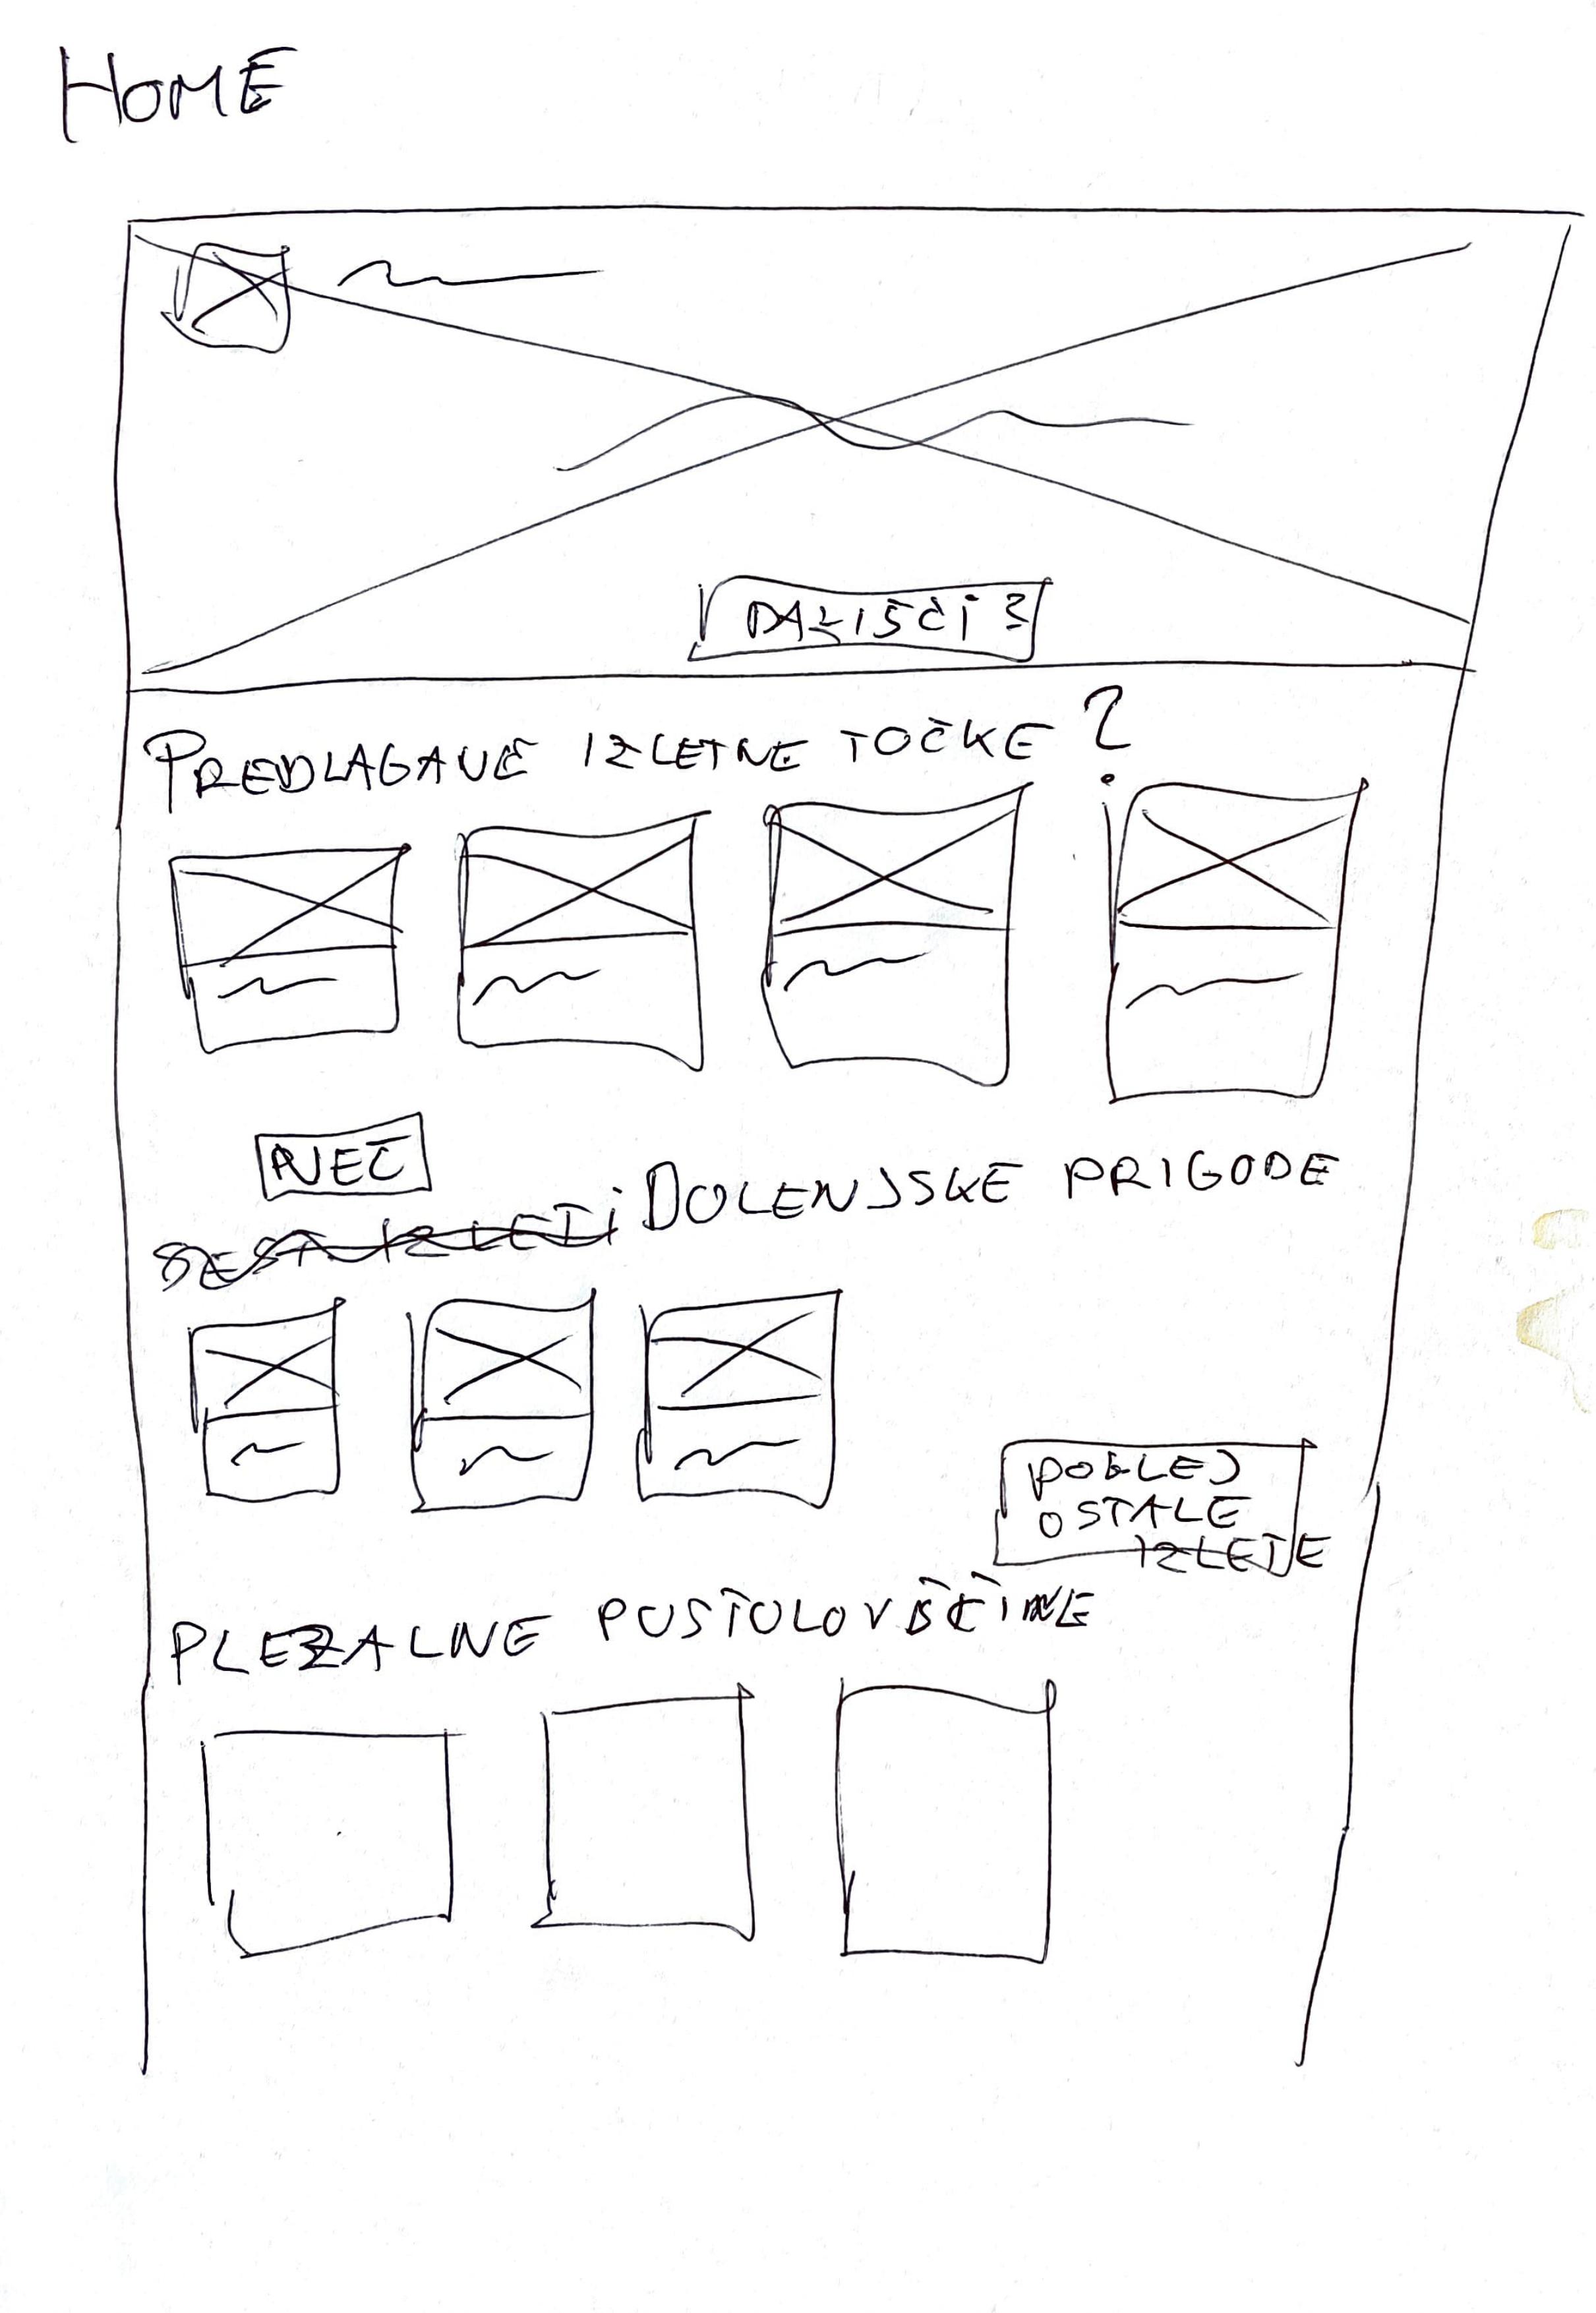 HOME
PREDLAGANE IZLETNE TOČKE ?
DOLENJSKE PRIGODE
POGLEJ
OSTALE
IZLETE
PLEZALNE PUSTOLOVŠČINE